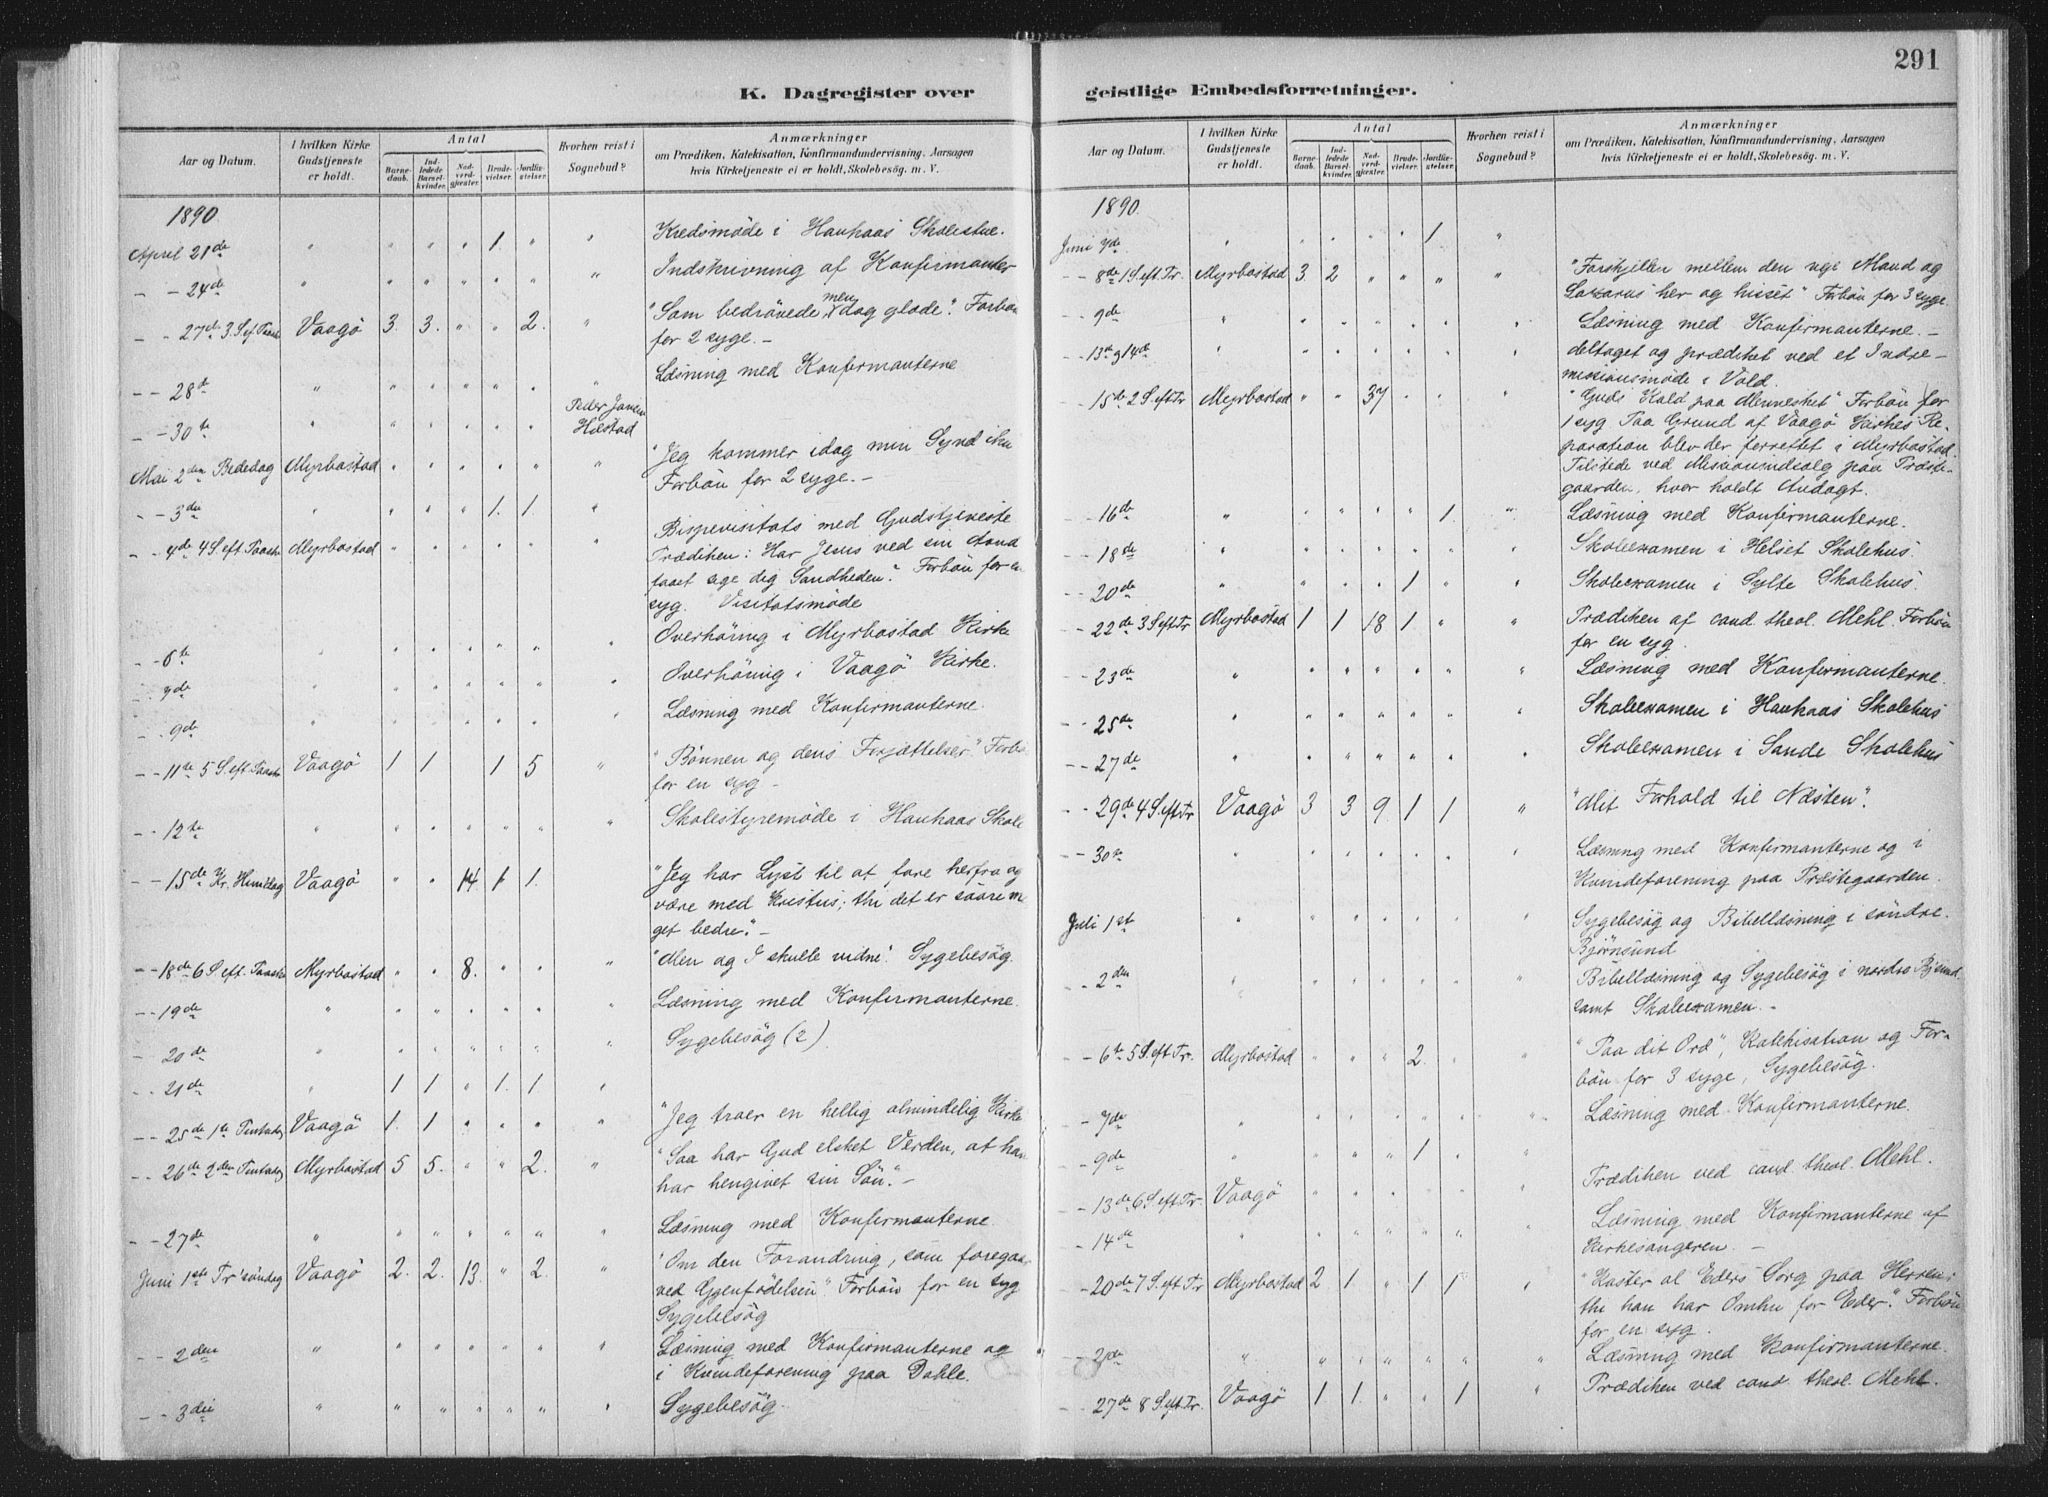 291
K. Dagregister over geistlige Embedsforretninger.
Aar og Datum. | I hvilken Kirke Gudstjeneste er holdt. | Antal | Barnedaab. | Indledede Barselkvinder. | Nadverdgjester. | Brudevielser. | Jordfæstelser. | Hvorhen reist i Sognebud? | Anmærkninger om Prædiken, Katekisation, Konfirmandundervisning, Aarsagen hvis Kirketjeneste ei er holdt, Skolebesøg. m. V.
1890
April 21de " " " " 1. " " Kredsmøde i Hauhaas Skolestue.
- - 24de " " " " " " " Indskrivning af Konfirmanter
- - 27de 3 S. ef. Paaske Vaagö 3. 3. " " 2. " "Som bedrövede men dog glade". Forbön
for 2 syge. -
- - 28de " " " " " " " Læsning med Konfirmanterne
- - 30te " " " " " " Peder Jansen
Hæstad
Mai 2den Bededag Myrbostad " " " " " " "Jeg kommer idag min Synd
Forbön for 2 syge. -
- - 3die " " " " 1. 1. "
- - 4de 4 S. eft. Paaske Myrbostad " " " " " " Bispevisitats med Gudstjeneste
Prædiken: Har Jesus ved sin Aand
faaet sige dig Sandheden". Forbön for en
syg. Visitatsmöde
- - 6te " " " " " " " Overhöring i Myrbostad Kirke
- - 7de " " " " " " " Overhöring i Vaagö Kirke.
- - 9de " " " " " " " Læsning med Konfirmanterne.
- - 11te 5 S. eft. Paaske Vaagö 1 1 1 5 " "Bönnen og dens Forjættelser" Forbö
for en syg -
- - 12te " " " " " " " Skolestyremöde i Hauhaas Skole
- - 15de Kr. Himfdag Vaagö " " 14 1 1. "Jeg har Lyst til at fare herfra og
være med Kristus; thi det er saare me
get bedre". -
- - 18de 6 S. eft. Paaske Myrbostad " " 8. " " " "Men og I skulle vidne". Sygebesög.
- - 19de " " " " " " " Læsning med Konfirmanterne.
- - 20de " " " " " " " Sygebesög (2)
- - 21de " 1 1 " 1. 1. "
- - 25de 1te Pintsedag Vaagö 1. 1 " " " " "Jeg troer en hellig almindelig Kirke
- - 26de 2den Pintsedag Myrbostad 5 5. " " 2. " "Saa har Gud elsket Verden, at han
har hengivet sin Sön". -
- - 27de " " " " " " " Læsning med Konfirmanterne
Juni 1ste Tr'söndag Vaagö 2. 2. 13. " 2. " "Om den Forandring, som foregaar
ved Gjenfödelsen" Forbön for en syg
Sygebesög
- - 2den " " " " " " " Læsning med Konfirmanterne og
i Kvindeforening paa Dahle.
- - 3die " " " " " " " Sygebesög.
Aar og Datum. | I hvilken Kirke Gudstjeneste er holdt. | Antal | Barnedaab. | Indledede Barselkvinder. | Nadverdgjester. | Brudevielser. | Jordfæstelser. | Hvorhen reist i Sognebud? | Anmærkninger om Prædiken, Katekisation, Konfirmandundervisning, Aarsagen hvis Kirketjeneste ei er holdt, Skolebesøg. m. V.
1890.
Juni 7de " " " " " 1 "
- - 8de 1 S. eft. Tr. Myrbostad 3. 2 " " " " "Forskjellen mellem den rige Mand og
Lazarus her og hisset" Forbön for 3 syge
- - 9de " " " " " " " Læsning med Konfirmanterne. -
- - 13de og 14de " " " " " " " deltaget og prædiket ved et Indre-
missionsmöde i Vold.
- - 15de 2 S. eft Tr Myrbostad " " 37 " " " "Guds Kald paa Mennesket" Forbön for
1 syg Paa Grund af Vaagö Kirkes Re-
paration blev der forrettet i Myrbostad.
Tilstede ved Missionsudsalg paa Præste-
gaarden, hvor holdt Andagt.
- - 16de " " " " " 1. " Læsning med Konfirmanterne.
- - 18de " " " " " " " Skoleexamen i Helset Skolehus.
- - 20de " " " " 1 " " Skoleexamen i Sylte Skolehus.
- - 22de 3 S. eft. Tr Myrbostad 1 1 18 1 " " Prædiken af cand. theol. Mehl. Forbön
for en syg.
- - 23de " " " " " " " Læsning med Konfirmanterne.
- - 25de " " " " " " " Skoleexamen i Hauhaas Skolehus
- - 27de " " " " " " " Skoleexamen i Sande Skolehus
- - 29de 4 S. eft Tr Vaagö 3 3 9. 1 1 " "Mit Forhold til Næsten".
- - 30te " " " " " " " Læsning med Konfirmanterne og i
Kvindeforening paa Præstegaarden.
Juli 1ste " " " " " " " Sygebesög og Bibellæsning i söndre.
Björnsund
- - 2den " " " " " " " Bibellæsning og Sygebesög i nordre Bj'sund.
samt Skoleexamen. -
- - 6te 5 S. eft Tr. Myrbostad " " " 2. " " "Paa dit Ord", Katekisation og For-
bön for 3 syge, Sygebesög.
- - 7de " " " " " " " Læsning med Konfirmanterne.
- - 9de " " " " 1 " "
- - 13de 6 S. eft Tr. Vaagö " " " " " " Prædiken ved cand. theol. Mehl.
- - 14de " " " " " " " Læsning med Konfirmanterne af
Kirkesangeren. -
- - 20de 7 S. eft Tr Myrbostad 2. 1. " 1 1 " "Kaster al Eders Sorg paa Herren;
thi han har Omhu for Eder". Forbön
for en syg.
- - " " " " " " " Læsning med Konfirmanterne.
- - 27de 8 S. eft. Tr. Vaagö 1 1. " " 1 " Prædiken ved cand. theol. Mehl.